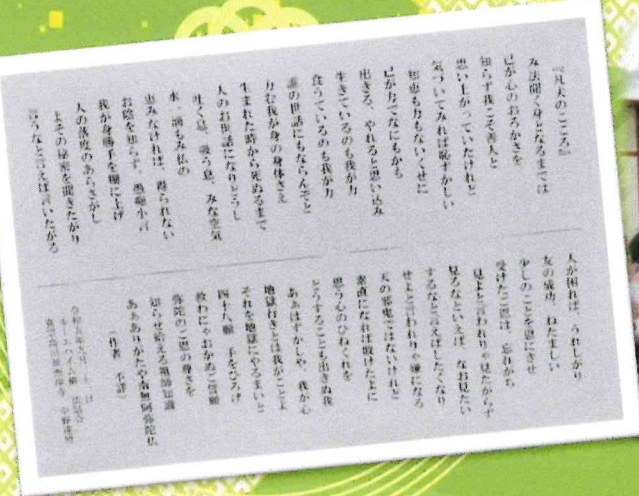 『凡夫のこころ』
み法聞く身となるまでは
己が心のおろかさを
知らず我こそ善人と
思い上がっていたけれど
気づいてみれば恥ずかしい
知恵も力もないくせに
己が力でなにもかも
出きる、やれると思い込み
生きているのも我が力
食うているのも我が力
誰の世話にもならんぞと
力む我が身の身体さえ
生まれた時から死ぬるまで
人のお世話になりどうし
吐く息、吸う息、みな空気
水一滴もみ私の
恵みなければ、得られない
お陰を知らず、愚痴小言
我が身勝手を棚に上げ
人の落度のあらさがし
よその秘密を聞きたがり
言うなと言えば言いたがる
人が困れば、うれしがり
友の成功、ねたましい
少しのことを恩にきせ
受けたご恩は、忘れがち
見よと言われりゃ見たがらず
見るなといえば、なお見たい
するなと言えばしたくなり
せよと言われりゃ嫌になる
天の邪鬼ではないけれど
素直になれば負けたよに
思う心のひねくれを
どうすることも出きぬ我
あぁはずかしや、我が心
地獄行きとは我がことよ
それを地獄にやるまいと
四十八願 手をひろげ
救わにゃおかぬご誓願
弥陀のご恩の尊さを
知らせ給える祖師知識
あぁありがたや南無阿弥陀仏
（作者 不詳）